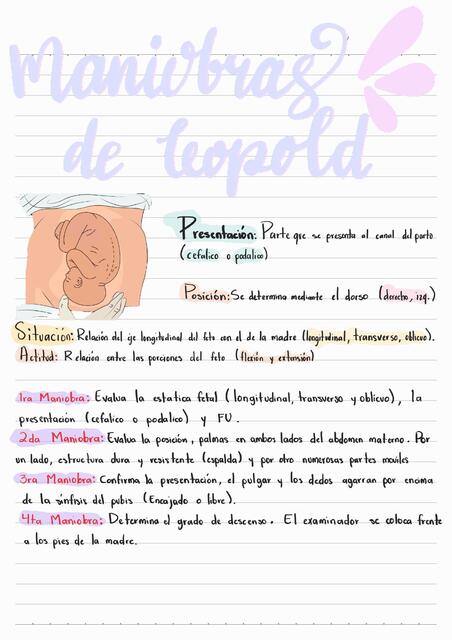 Maniobras
de leopold
Presentación: Parte que se presenta al canal del parto
(cefalico o podalico)
Posición: Se determina mediante el dorso (derecho, izq.)
Situación: Relación del eje longitudinal del feto con el de la madre (longitudinal, transverso, oblicuo).
Actitud: Relación entre las porciones del feto (flexión y extensión)
1ra Maniobra: Evalua la estatica fetal (longitudinal, transverso y oblicuo), la
presentación (cefalico o podalico) y FU.
2da Maniobra: Evalua la posición, palmas en ambos lados del abdomen materno. Por
un lado, estructura dura y resistente (espalda) y por otro numerosas partes moviles
3ra Maniobra: Confirma la presentación, el pulgar y los dedos agarran por encima
de la sínfisis del pubis (Encajado o libre).
4ta Maniobra: Determina el grado de descenso. El examinador se coloca frente
a los pies de la madre.